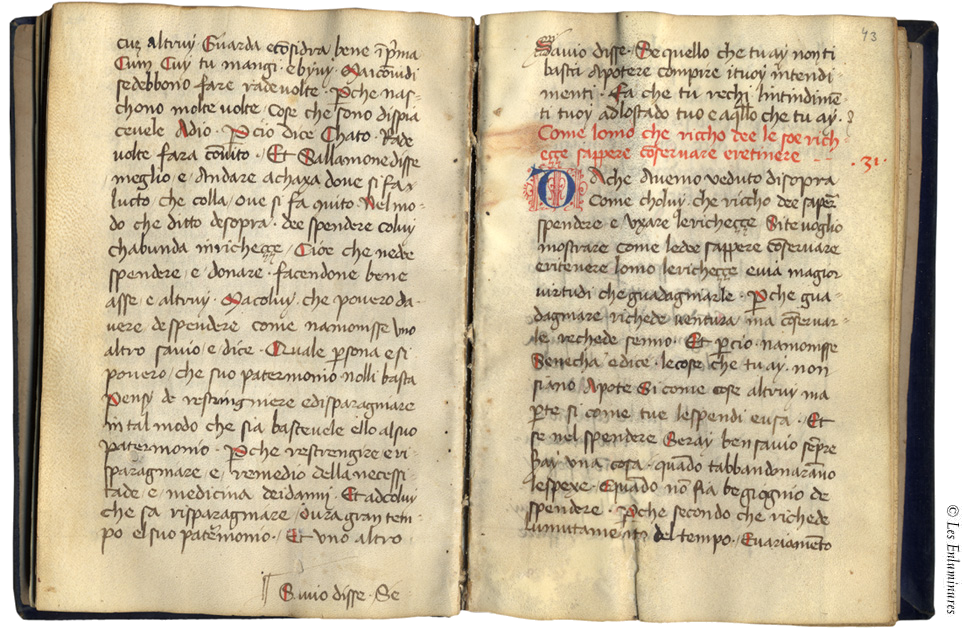 cuę altruy Guarda ecosidra bene ī pma
Cum Cuy tu mangi · e byuy · Ma icōuidi
se debbono fare rade volte · Pche nas-
chono molte volte · Cose che sono dispia
ceuele Adio · Pcio dice Chato · Rade
volte fara cōuito · Et Sallamone disse
meglio e Andare a chaxa doue si fa
lucto che colla oue si fa quito Nel mo-
do che ditto desopra · dee spendere coluy
chabunda in richeçe Cioe che nedee
spendere e donare · facendone bene
asse e altruy · Ma coluy che pouero da-
uere de spendere come namonisse uno
altro sauio e dice · Quale psona e si
pouero che suo patermonio nolli basta
Pensy de restringniere e disparagniare
in tal modo che sia basteuele ello al suo
patermonio · Pche restrengire e ri
sparagniare e remedio della necessi
tade e medicina dei danny Et ad coluy
che sa risparagniare dura gran tem-
po el suo patermonio · Et uno altro
Sauio disse · Se
43
Sauio disse · Se quello che tu ay non ti
basta Apotere compire i tuoy intendi
menti · Fa che tu rechi li intindimē
ti tuoy ad lo stado tuo e a qllo che tu ay ·
Come lomo che riccho dee le soe rich
eççe sappere cōseruare e retinere
· 31 ·
DA che Auemo veduto disopra
Come choluy che riccho dee saper
spendere e vxare le richeççe Si te voglio
mostrare come le dee sappere cōseruare
e ritenere lomo le richeççe e uia magior
virtudi che guadagniarle · Pche gua-
dagniare richede ventura ma cōseruar-
le rechede senno · Et pcio namonisse
Senecha e dice · le cose che tu ay non
siano Apote Si come cose altruy ma
pte si come tue le spendi e usa · Et
se nel spendere Seray ben sauio sēpre
hay una cosa · quādo tabbandonarāno
le spexe · E quādo nō fia begiognio de
spendere · Pche secondo che richede
lumutamento del tempo · E uariamēto
© Les Enluminures